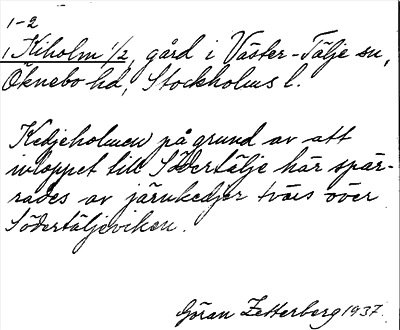 1-2
1 Kiholm 1/2, gård i Väster-Tälje sn,
Öknebo hd, Stockholms l.
Kedjeholmen på grund av att
inloppet till Södertälje här spär-
rades av järnkedjor tvärs över
Södertäljeviken.
Göran Zetterberg 1937.